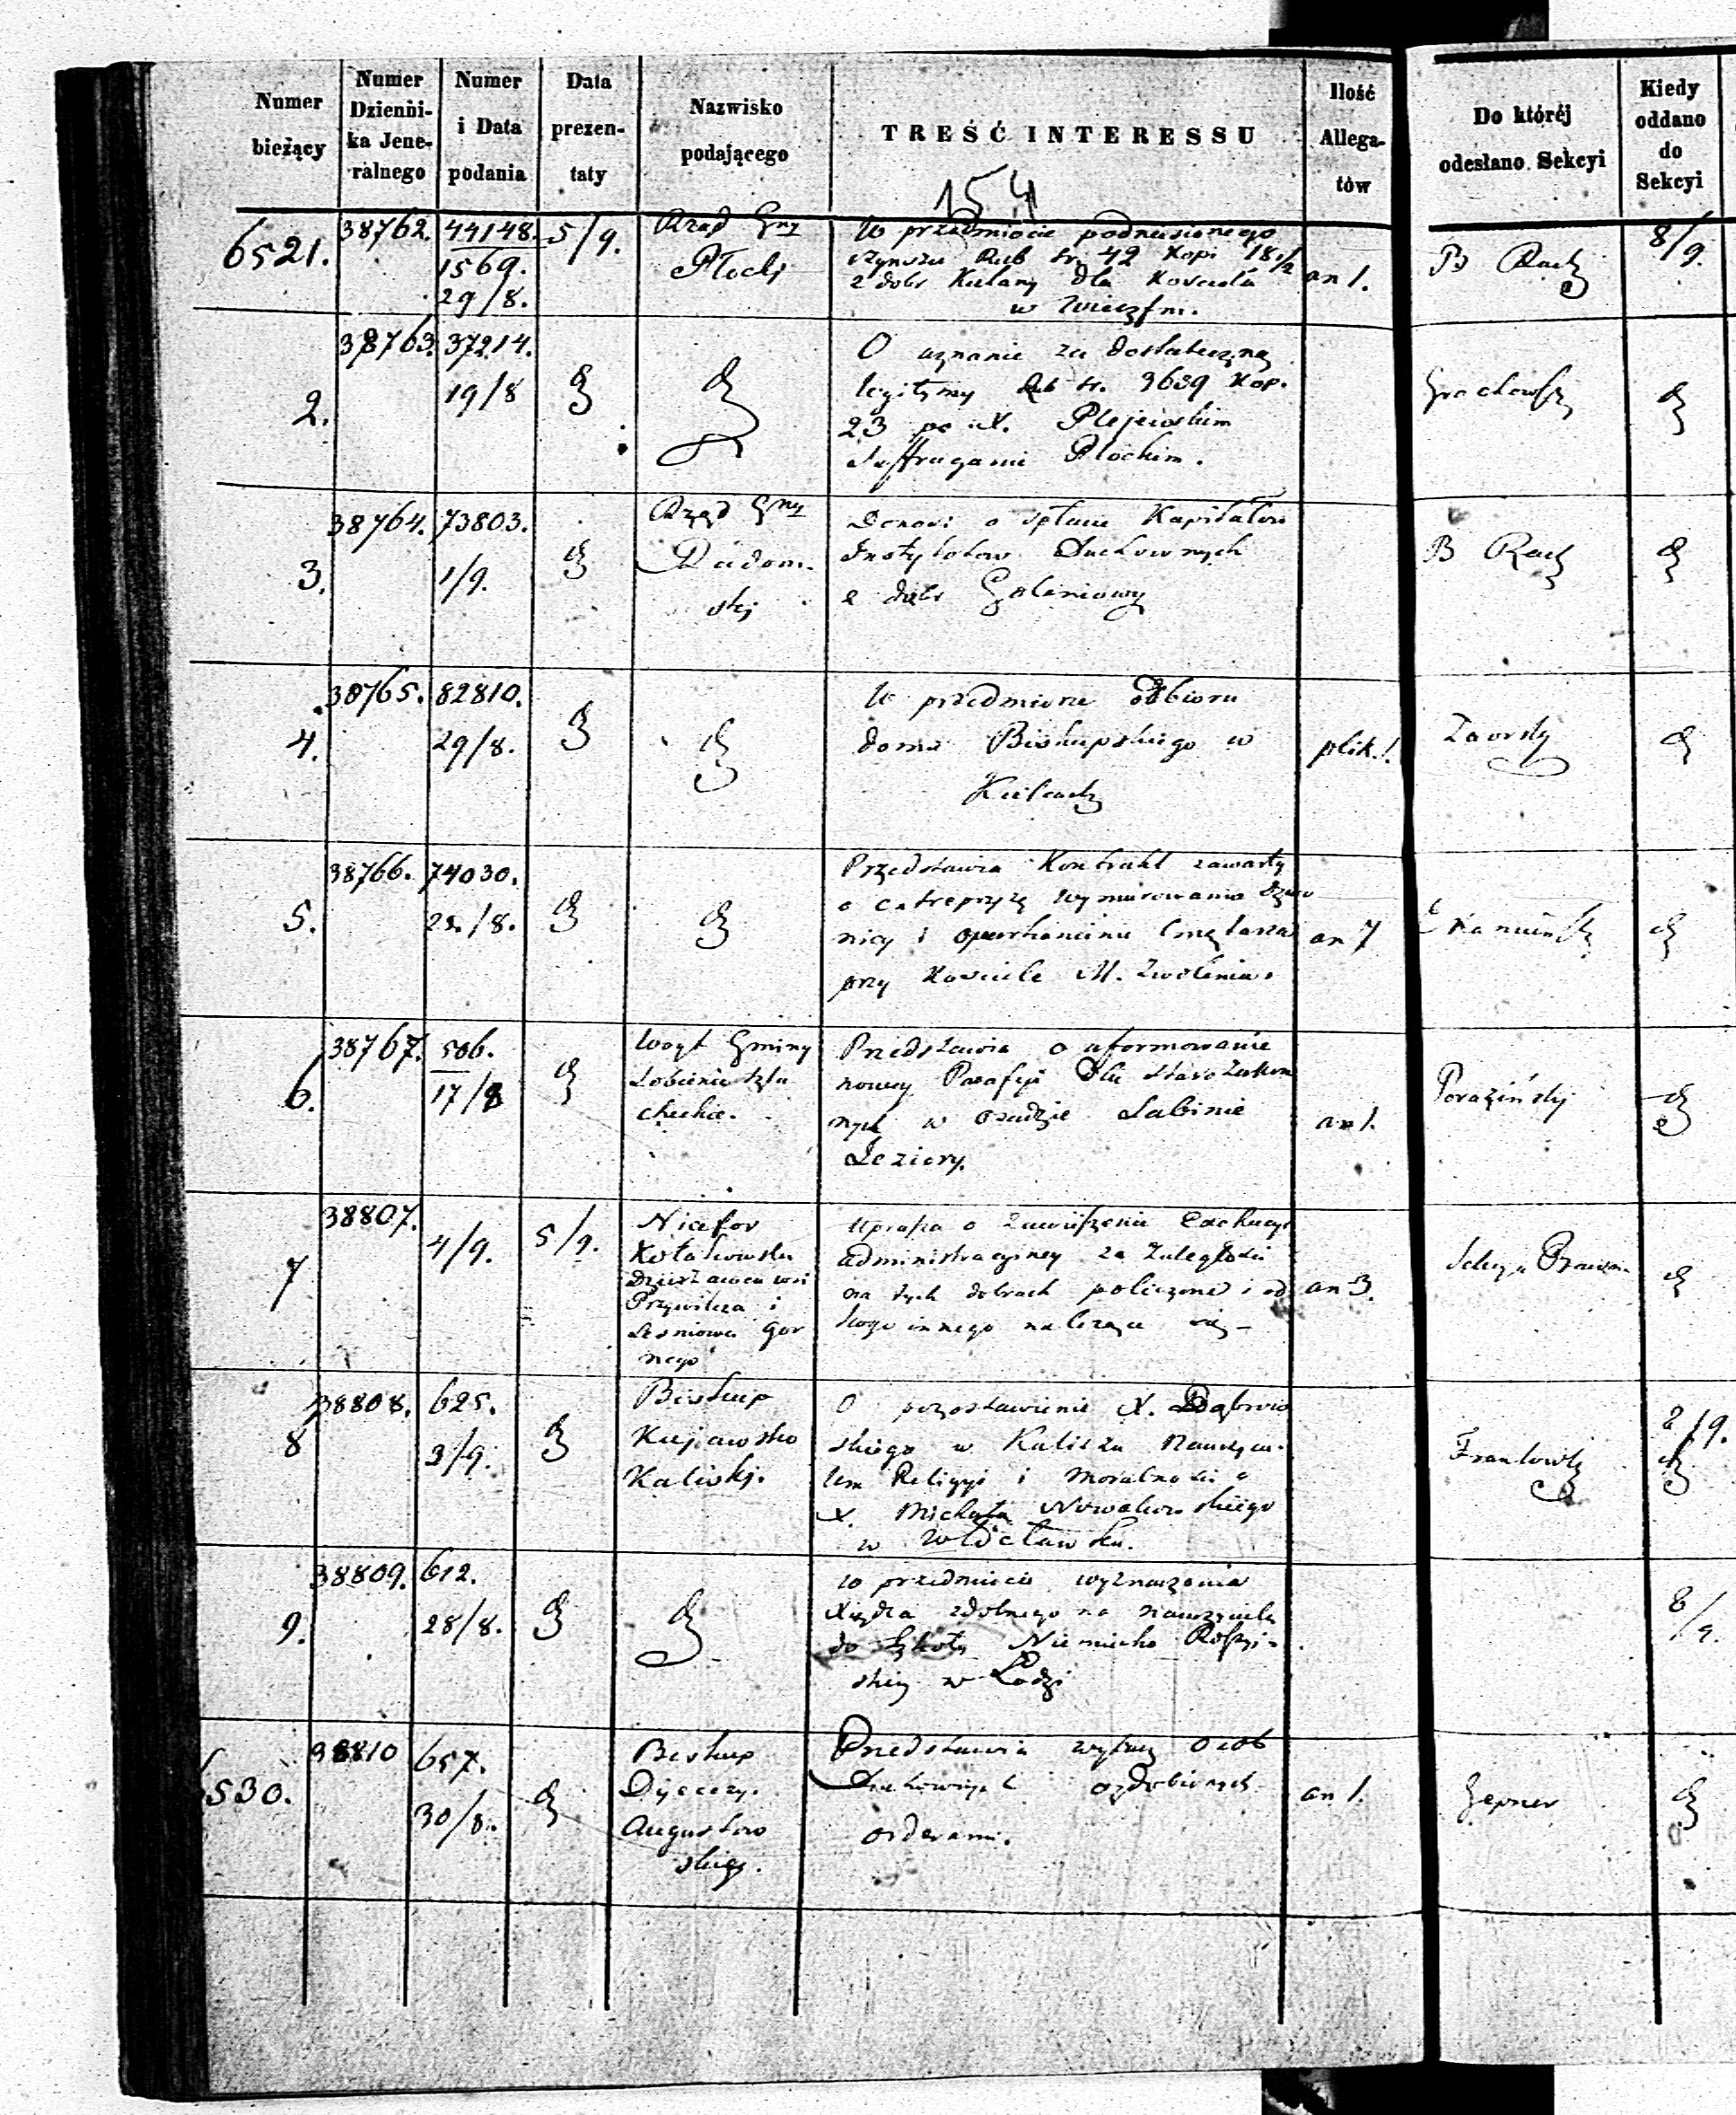 Numer bieżący
Numer Dzienni-ka Jene-ralnego
Numer i Data podania
Data prezen-taty
Nazwisko podającego
TREŚĆ INTERESSU
Ilość Allega-tów
Do któréj odesłano Sekcyi
Kiedy oddano do Sekcyi
154
6521.
38762.
44148.
1569.
29/8.
5/9.
Rząd Gny
Płocki
W przedmiocie podniesionego
czynszu Rub sr. 42 Kopi 18 1/2
z dobr dla Kościoła
w
an 1.
B
8/9.
2.
38763.
37214.
19/8
O uznanie za dostateczną
legitymy Rub sr. 3639 Kop.
23 po X.
Suffraganie Płockim.
3.
38764.
73803.
1/9.
Rząd Gny
Radom-
skij
Donosi o spłacie Kapitałów
Instytutow Duchownych
z dóbr Goleniowy
B
4.
38765.
82810.
29/8.
W przedmiocie odbioru
domu Biskupskiego w
Kielcach
plik.1.
5.
38766.
74030.
/8.
Przedstawia Kontrakt zawarty
o entrepryzę wymurowania dzwo
nicy i oparkanienia Cmętarza
przy Kościele M. Zwolenia.
an 7
6.
38767.
506.
17/8
Woyt Gminy
Łobienie szla
checkie.
Przedstawia o uformowanie
nowey Parafji dla Starozakon
nych w osadzie Łabinie
Jeziory.
an 1.
7
38807.
4/9.
5/9.
Nicefor
Kołakowski
Dzierżawca wsi
i
Leśniowa Gor
nego
Uprasza o zawieszenie Exekucyi
administracyjney za zaległości
na tych dobrach policzone i od
kogo innego należące się –
an 3.
8
38808.
625.
3/9.
Biskup
Kujawsko
Kaliski.
O pozostawienie X. Dąbrow
skiego w Kaliszu Nauczycie-
lem Religyi i Moralności a
X. Michała Nowakowskiego
w Włocławsku.
8/9.
9.
38809.
612.
28/8.
W przedmiocie wyznaczenia
Xiędza zdolnego na nauczyciela
do Szkoły Niemiecko Rossyi-
skiey w Łodzi
8/9.
6530.
38810
657.
30/8.
Biskup
Dyecezy.
Augustow
skiey.
Przedstawia wykaz osób
Duchownych ozdobionych
orderami.
an 1.
Hepner